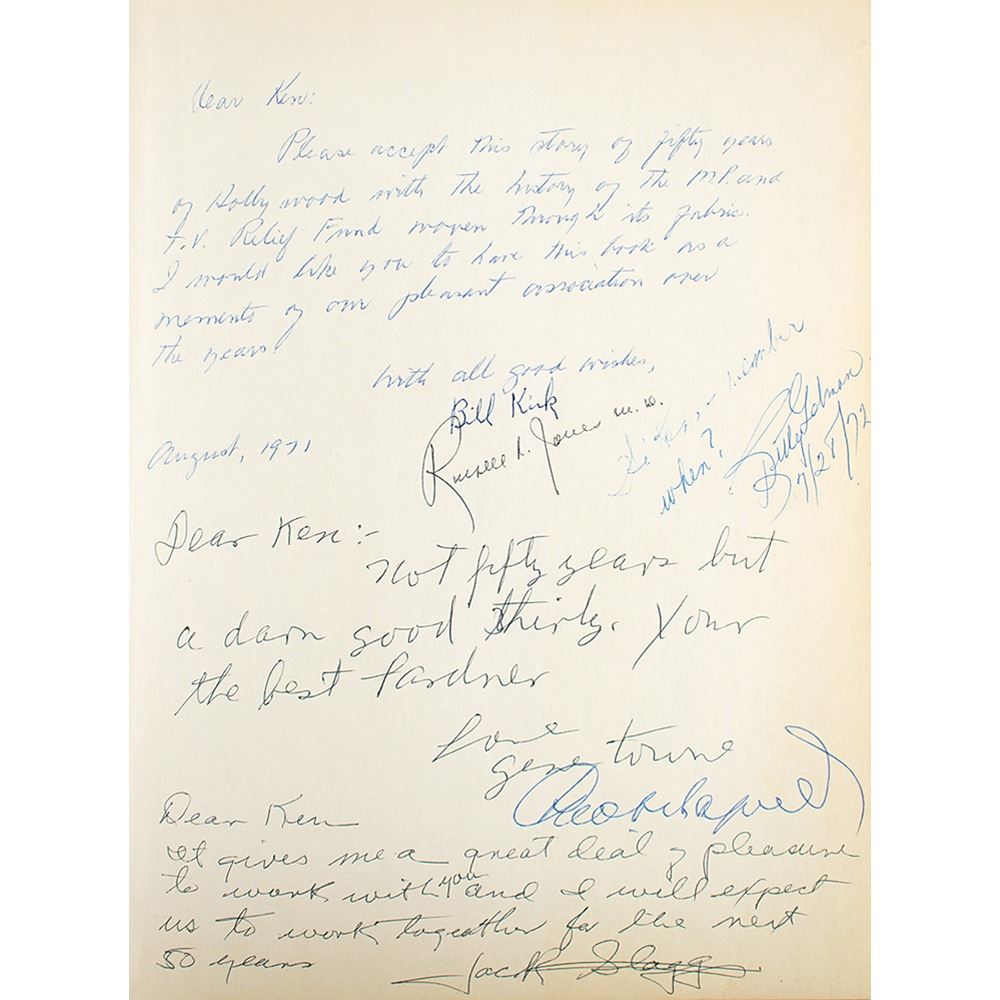 Dear Ken:
Please accept this story of fifty years
of Hollywood with the history of the M.P. and
T.V. Relief Fund woven through its fabric.
I would like you to have this book as a
memento of our pleasant association over
the years.
With all good wishes,
Bill Kirk
Russell L. Jones M.D.
August, 1971
Hi Ken - remember
when?
Billy Gelman
7/28/72
Dear Ken:-
Not fifty years but
a darn good thirty. Your
the best Pardner
Love
Gene Towne
Dear Ken
It gives me a great deal of pleasure
to work with you and I will expect
us to work togeather for the next
50 years
Jack